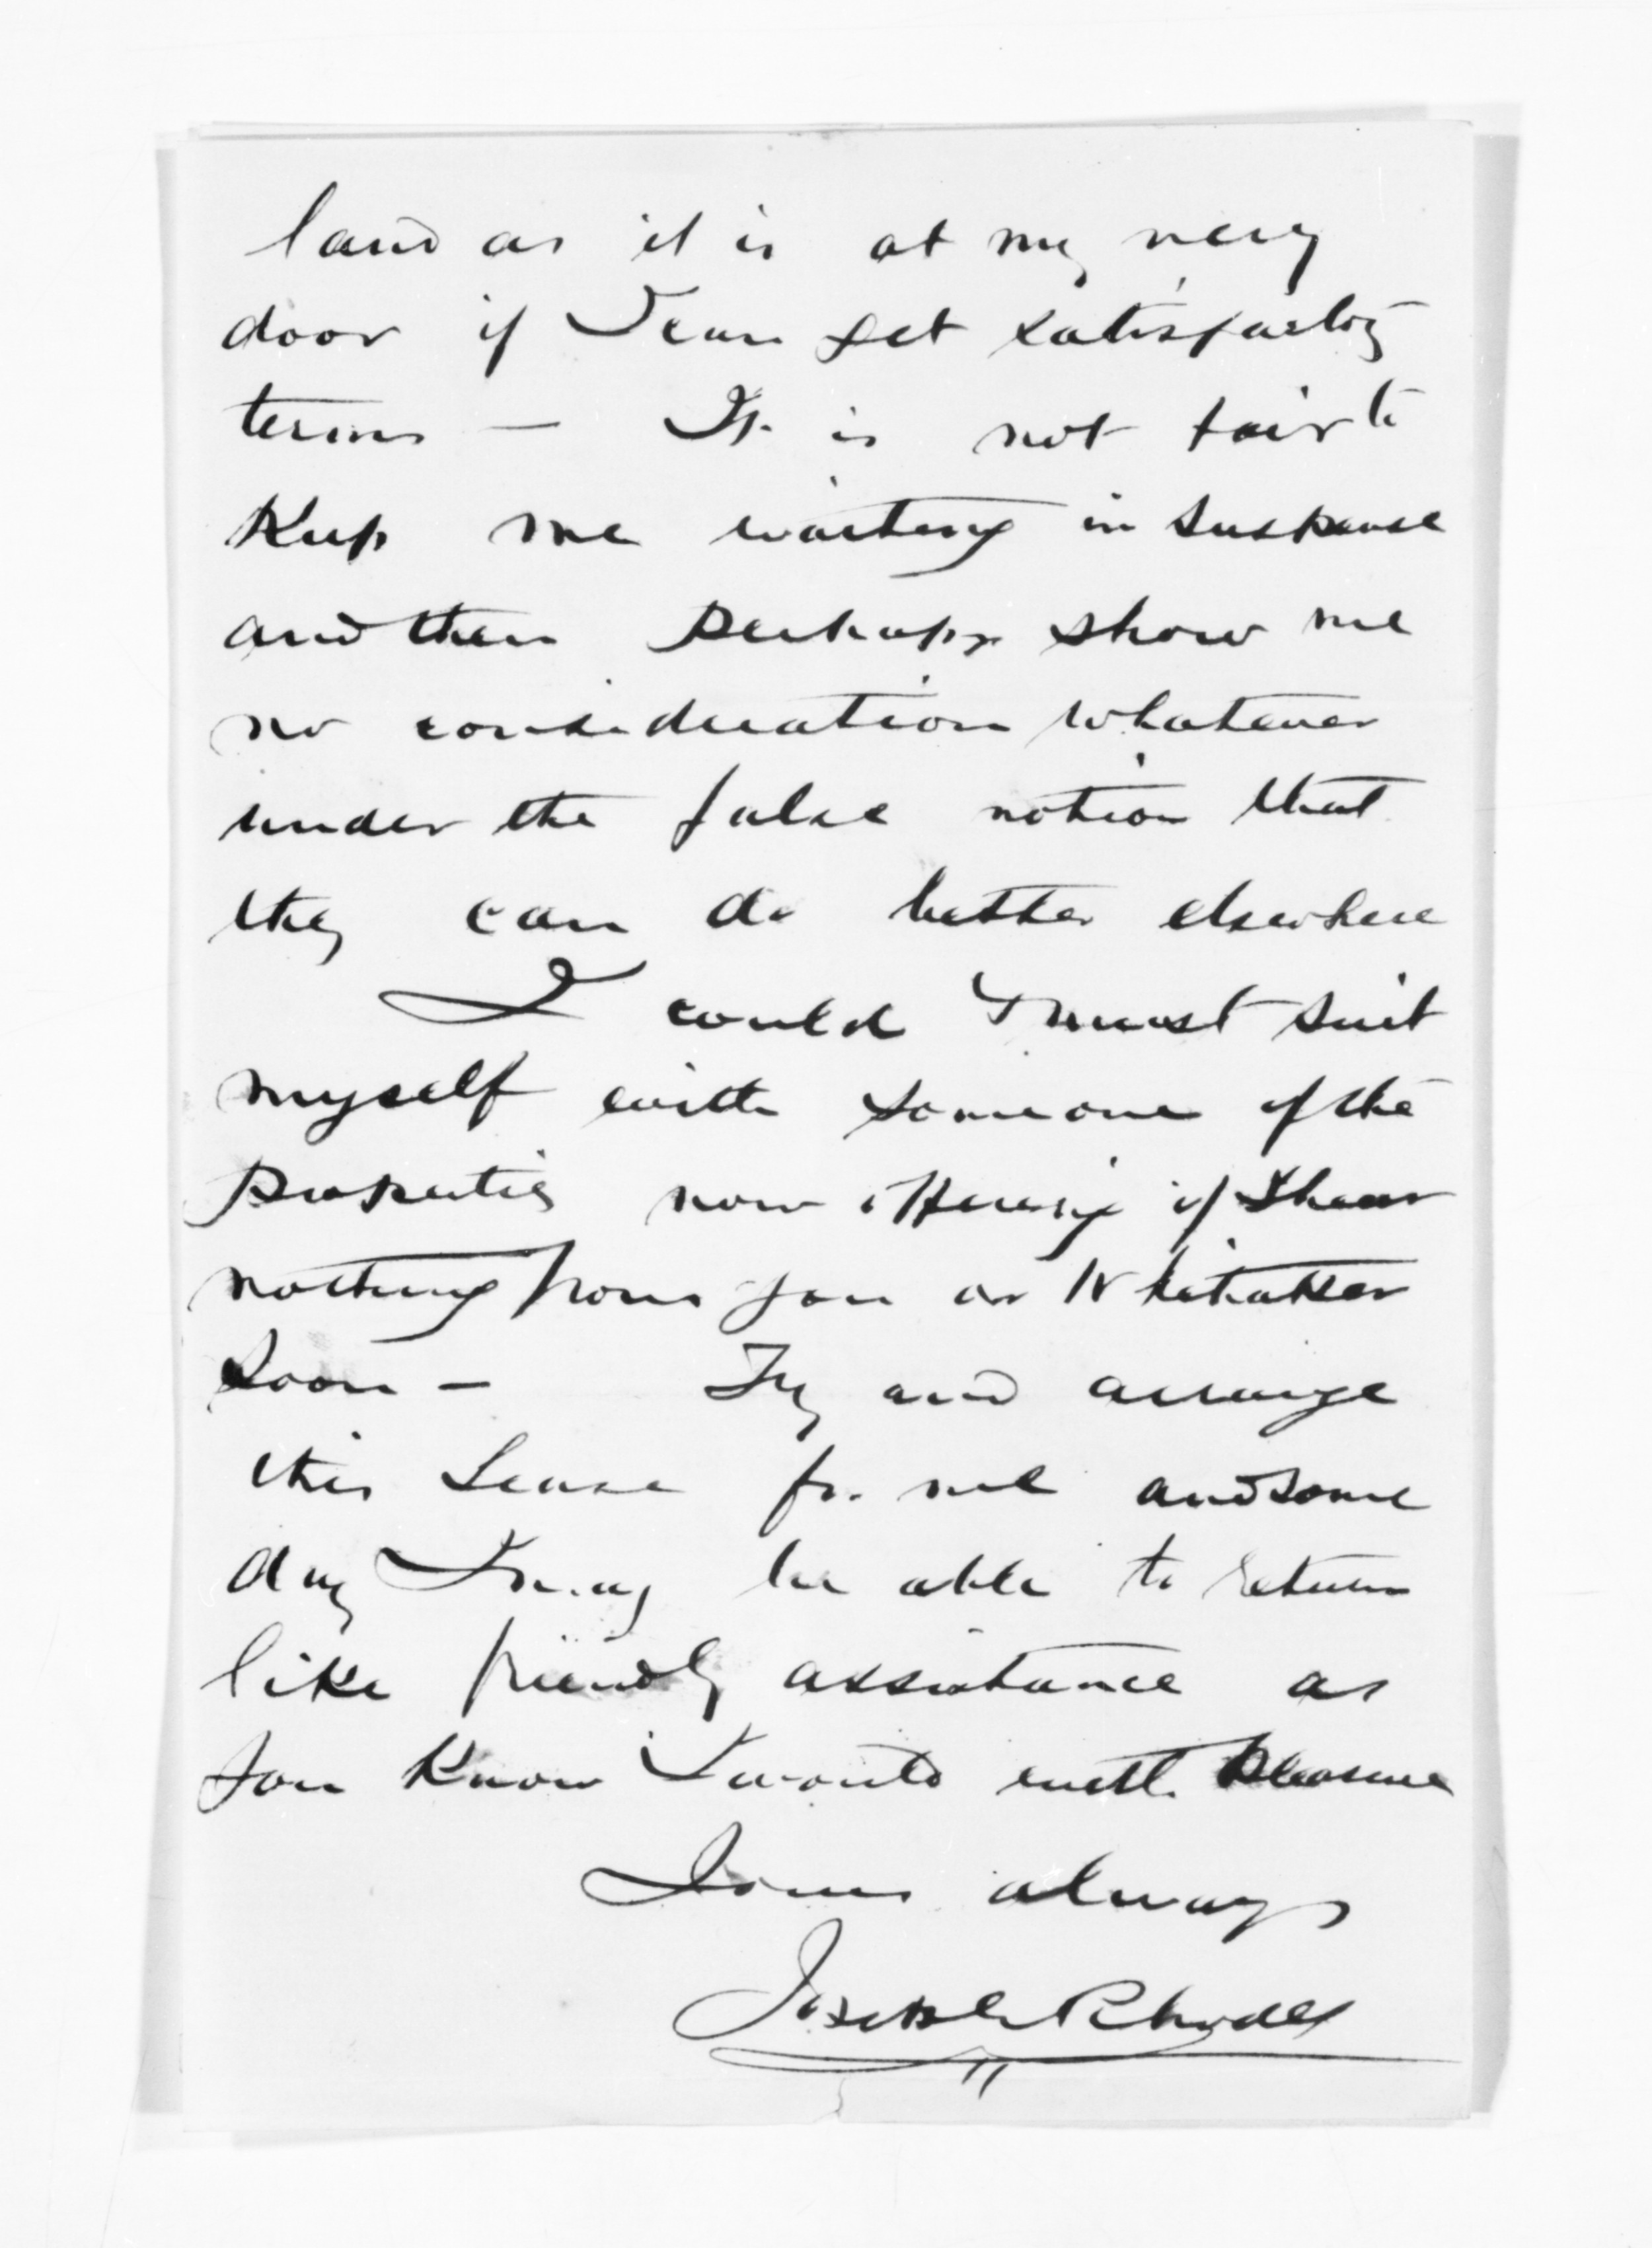 land as it is at my very
door if I can get satisfactory
terms — It is not fair to
Keep me waiting in suspense
and then perhaps show me
no consideration whatever
under the false notion that
they can do better elsewhere
I could & must suit
myself with someone of the
properties now offering if I hear
nothing from you or Whitaker
soon — Try and arrange
this Lease for me and some
day I may be able to return
like friendly assistance as
you Know I would with pleasure
Yours always
Joseph Rhodes